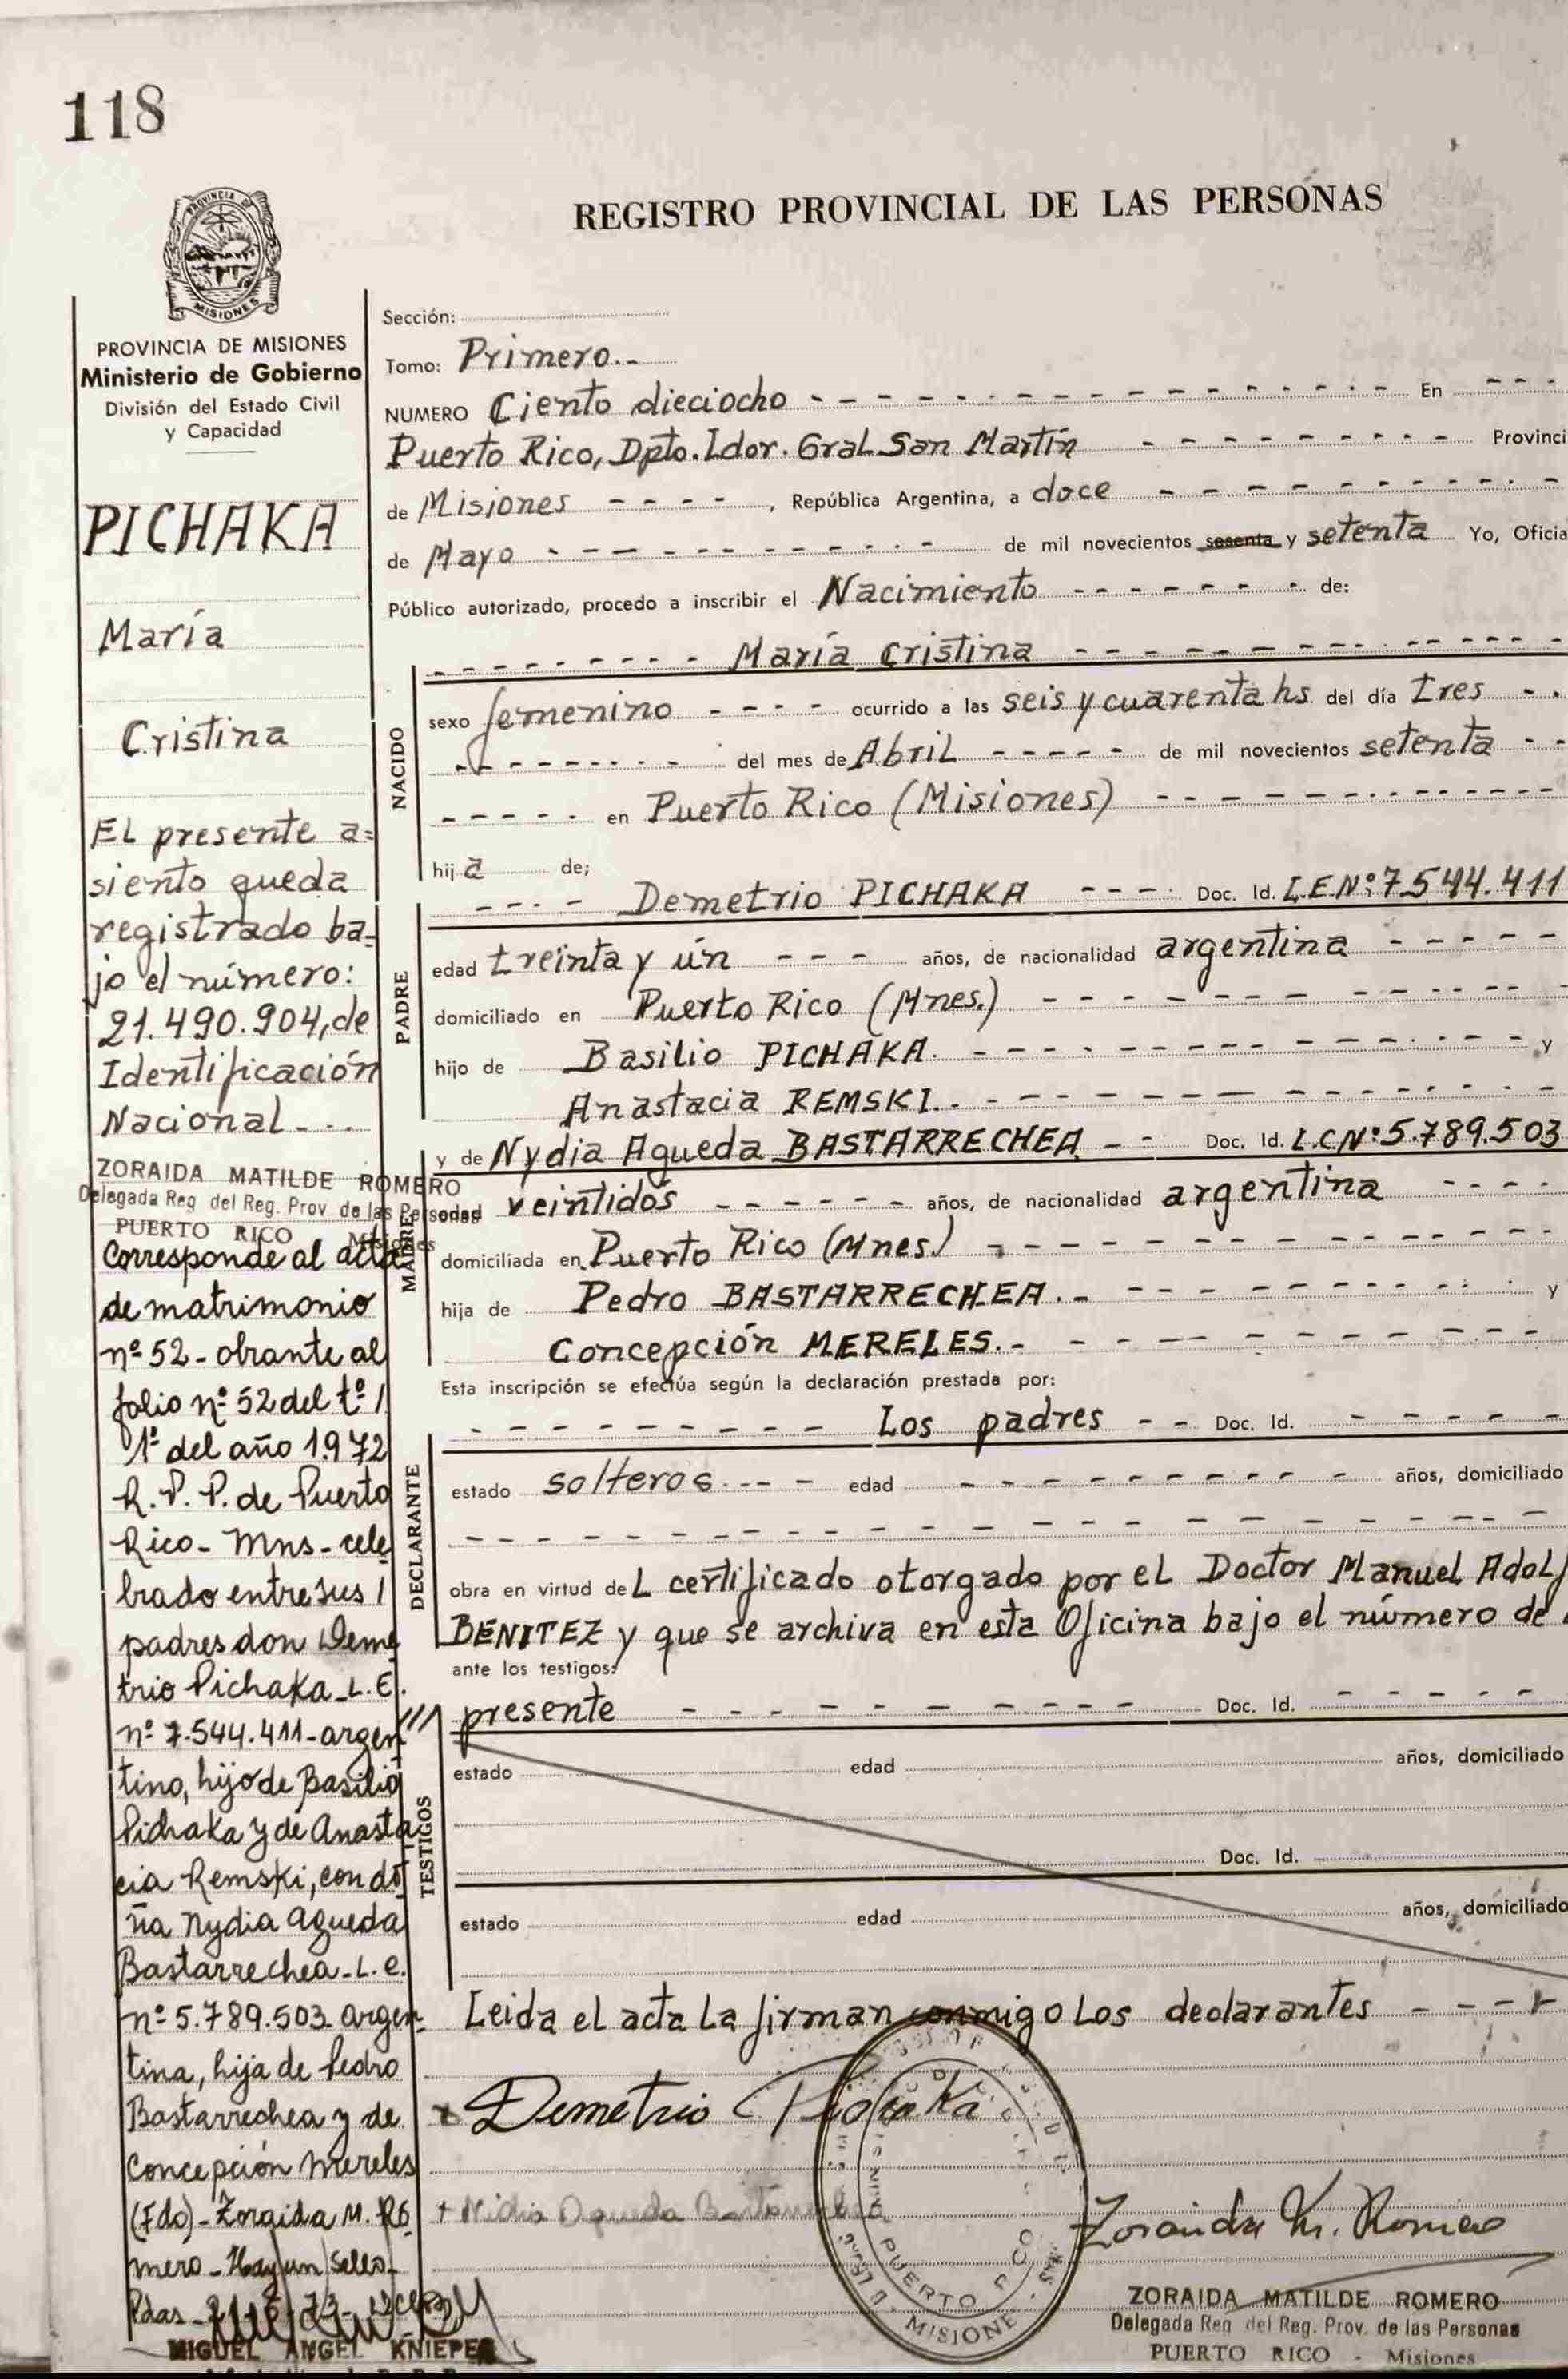 118
REGISTRO PROVINCIAL DE LAS PERSONAS
PROVINCIA DE
MISIONES
PROVINCIA DE MISIONES
Ministerio de Gobierno
División del Estado Civil
y Capacidad
PICHAKA
María
Cristina
El presente a=
siento queda
registrado ba=
jo el número:
21.490.904, de
Identificación
Nacional - . .
ZORAIDA MATILDE ROMERO
Delegada Reg del Reg. Prov de las Personas
PUERTO RICO Misiones
Corresponde al acta
de matrimonio
nº 52 - obrante al
folio nº 52 del tº /
1º del año 1.972
R. P. P. de Puerto
Rico - Mns - cele
brado entre sus /
padres don Deme
trio Pichaka - L. E.
nº 7.544.411 - argen
tino, hijo de Basilio
Pichaka y de Anasta
cia Remski, con do
ña Nydia Agueda
Bastarrechea - L. C.
nº 5.789.503 - argen-
tina, hija de Pedro
Bastarrechea y de
Concepción Mereles
(Fdo) - Zoraida M. Ro
mero - Hay un sello -
Pdas -
MIGUEL ANGEL KNIEPER
Sección:
Tomo: Primero.-
NUMERO Ciento dieciocho - - - En - - -
Puerto Rico, Dpto. Ldor. Gral San Martín - - - Provinci
de Misiones - - - - , República Argentina, a doce - - -
de Mayo - - - de mil novecientos sesenta y setenta Yo, Oficia
Público autorizado, procedo a inscribir el Nacimiento - - - de:
- - - María Cristina - - -
NACIDO
sexo femenino - - - - ocurrido a las seis y cuarenta hs. del día tres - .
- - - del mes de Abril - - - de mil novecientos setenta - -
- - - en Puerto Rico (Misiones) - - -
hija de;
- - - - Demetrio PICHAKA - - - Doc. Id. L.E.Nº: 7.544.411
PADRE
edad treinta y ún - - - años, de nacionalidad argentina - - -
domiciliado en Puerto Rico (Mnes.) - - -
hijo de Basilio PICHAKA. - - - y
Anastacia REMSKI. - - -
y de Nydia Agueda BASTARRECHEA - - Doc. Id. L.C.Nº: 5.789.503
MADRE
edad veintidós - - - años, de nacionalidad argentina - - - -
domiciliada en Puerto Rico (Mnes.) - - -
hija de Pedro BASTARRECHEA.- - - - y
Concepción MERELES.- - - -
Esta inscripción se efectúa según la declaración prestada por:
- - - Los padres - - Doc. Id. - - -
DECLARANTE
estado solteros - - - edad - - - años, domiciliado
- - -
obra en virtud del certificado otorgado por el Doctor Manuel Adolf
BENITEZ y que se archiva en esta Oficina bajo el número de
ante los testigos:
/// presente - - - Doc. Id. - - -
TESTIGOS
estado edad años, domiciliado
Doc. Id.
estado edad años, domiciliado
Leida el acta la firman conmigo los declarantes - - - -
x Demetrio Pichaka
+ Nidia Agueda Bastarrechea
PUERTO RICO
MISIONES
Zoraida M. Romero
ZORAIDA MATILDE ROMERO
Delegada Reg del Reg. Prov. de las Personas
PUERTO RICO - Misiones